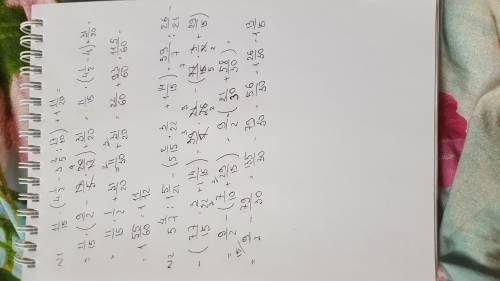 №1 11/15 · (4 1/2 - 3 2/5 : 17/20) + 1 11/20 =
= 11/15 · (9/2 - 17/5 · 20/17) + 31/20 = 11/15 · (4 1/2 - 4) + 31/20 =
= 11/15 · 1/2 + 31/20 = 11/30 + 31/20 = 22/60 + 93/60 = 115/60 =
= 1 55/60 = 1 11/12
№2 5 4/7 : 1 5/21 - (5 2/15 · 3/22 + 1 14/15) = 39/7 : 26/21 -
- (77/15 · 3/22 + 1 14/15) = 39/7 · 21/26 - (77/15 · 3/22 + 29/15)
= 9/2 - (7/10 + 29/15) = 9/2 - (21/30 + 58/30) =
= 9/2 - 79/30 = 135/30 - 79/30 = 56/30 = 1 26/30 = 1 13/15